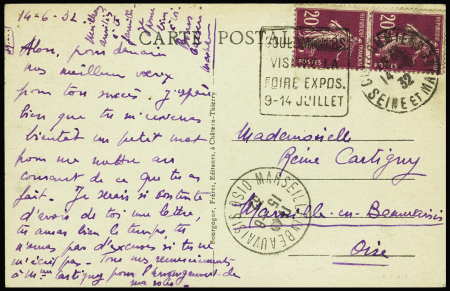 14-6-32.
CARTE POSTALE
Alors, pour demain
nos meilleurs vœux
pour ton succès. J'espère
bien que tu m'enverras
bientôt un petit mot
pour me mettre au
courant de ce que tu as
fait. Je serais si contente
d'avoir de toi une lettre,
tu auras bien le temps, tu
n'auras pas d'excuses si tu ne
m'écris pas. Tous mes remerciements
à Mme Cartigny pour l'arrangement de
ma robe.
Bourgogne, Frères, Editeurs, à Château-Thierry
VISITEZ LA
FOIRE EXPOS.
9-14 JUILLET
20c
POSTES
20c
14
32
SEINE ET MARNE
Mademoiselle
Reine Cartigny
Marseille-en-Beauvaisis
Oise
MARSEILLE-EN-BEAUVAISIS OISE
15-6
32